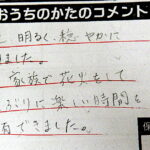 おうちのかたのコメント
明るく、穏やかに
ました。
家族で花火をして
ぶりに楽しい時間を
有できました。
保